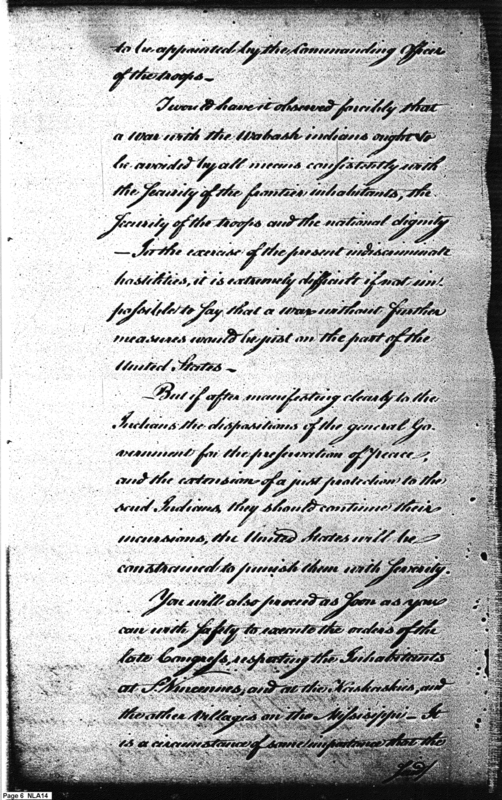 to be appointed by the Commanding Officer
of the troops—
I would have it observed forcibly that
a War with the Wabash indians ought to
be avoided by all means consistently with
the Security of the frontier inhabitants, the
Security of the troops and the national dignity
— In the exercise of the present indiscriminate
hostilities, it is extremely difficult if not im-
possible to say that a war without further
measures would be just on the part of the
United States—
But if after manifesting clearly to the
Indians the dispositions of the general Go-
vernment for the preservation of Peace,
and the extension of a just protection to the
said Indians, they should continue their
incursions, the United States will be
constrained to punish them with Severity.
You will also proceed as Soon as you
can with Safety to execute the orders of the
late Congress, respecting the Inhabitants
at St. Vincennes, and at the Kaskaskias, and
the other Villages on the Mississippi— It
is a circumstance of some importance that the
Page 6 NLA14